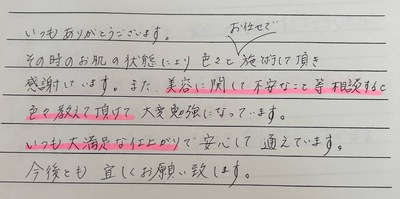 いつもありがとうございます。
お任せで
その時のお肌の状態により色々と施術して頂き
感謝しています。また、美容に関して不安なこと等相談すると
色々教えて頂けて大変勉強になっています。
いつも大満足な仕上がりで安心して通えています。
今後とも宜しくお願い致します。